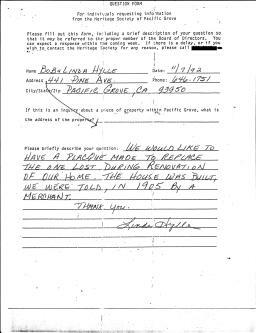 QUESTION FORM
For individuals requesting information
from the Heritage Society of Pacific Grove
Please fill out this form, including a brief description of your question so
that it may be referred to the proper member of the Board of Directors. You
can expect a response within the coming week. If there is a delay, or if you
wish to contact the Heritage Society for any reason, please call
Name BOB & LINDA HYLLE Date: 11/7/92
Address 441 PINE AVE. Phone: 646-1751
City/State/Zip PACIFIC GROVE, CA 93950
If this is an inquiry about a piece of property within Pacific Grove, what is
the address of the property?
Please briefly describe your question: WE WOULD LIKE TO
HAVE A PLACQUE MADE TO REPLACE
THE ONE LOST DURING RENOVATION
OF OUR HOME. THE HOUSE WAS BUILT,
WE WERE TOLD, IN 1905 BY A
MERCHANT.
THANK YOU.
Linda Hylle